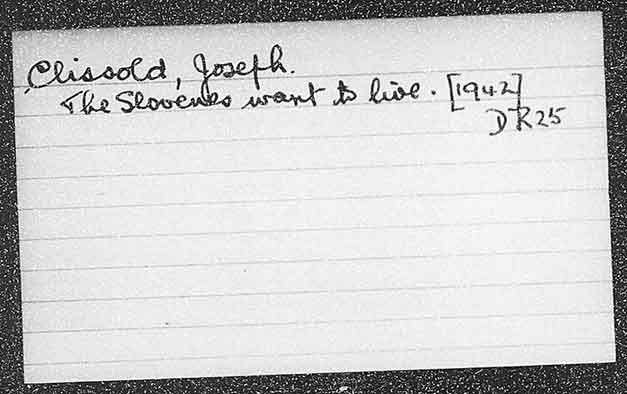 Clissold, Joseph.
The Slovenes want to live. [1942]
DR25